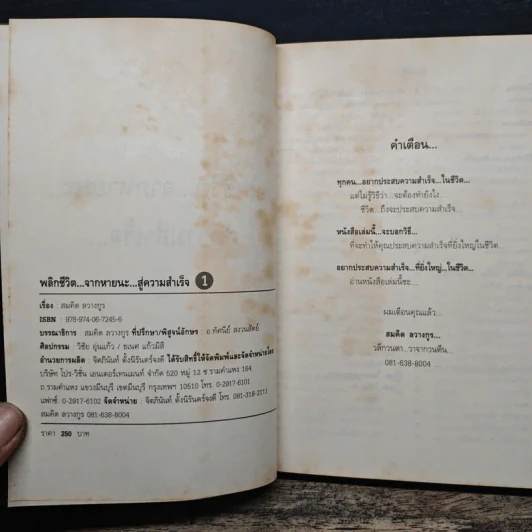 พลิกชีวิต...จากหายนะ...สู่ความสำเร็จ 1
เรื่อง : สมคิด ลวางกูร
ISBN : 978-974-06-7245-6
บรรณาธิการ : สมคิด ลวางกูร ที่ปรึกษา/พิสูจน์อักษร : อ.ทัศนีย์ สงวนสัตย์
ศิลปกรรม : วิชัย อุ่นแก้ว / ธเนศ แก้วมีสี
อำนวยการผลิต : จิตภินันท์ ตั้งนิรันดร์จงดี ได้รับสิทธิ์ให้จัดพิมพ์และจัดจำหน่ายโดย
บริษัท โปร-วิชั่น เอนเตอร์เทนเมนท์ จำกัด 520 หมู่ 12 ซ.รามคำแหง 184
ถ.รามคำแหง แขวงมีนบุรี เขตมีนบุรี กรุงเทพฯ 10510 โทร. 0-2917-6101
แฟกซ์. 0-2917-6102 จัดจำหน่าย : จิตภินันท์ ตั้งนิรันดร์จงดี โทร. 081-318-2111
สมคิด ลวางกูร 081-638-8004
ราคา 250 บาท
คำเตือน...
ทุกคน...อยากประสบความสำเร็จ...ในชีวิต...
แต่ไม่รู้วิธีว่า...จะต้องทำยังไง...
ชีวิต...ถึงจะประสบความสำเร็จ...
หนังสือเล่มนี้...จะบอกวิธี...
ที่จะทำให้คุณประสบความสำเร็จที่ยิ่งใหญ่ในชีวิต...
อยากประสบความสำเร็จ...ที่ยิ่งใหญ่...ในชีวิต...
อ่านหนังสือเล่มนี้ซะ...
ผมเตือนคุณแล้ว...
สมคิด ลวางกูร...
วลีกวนตา...วาจากวนตีน...
081-638-8004